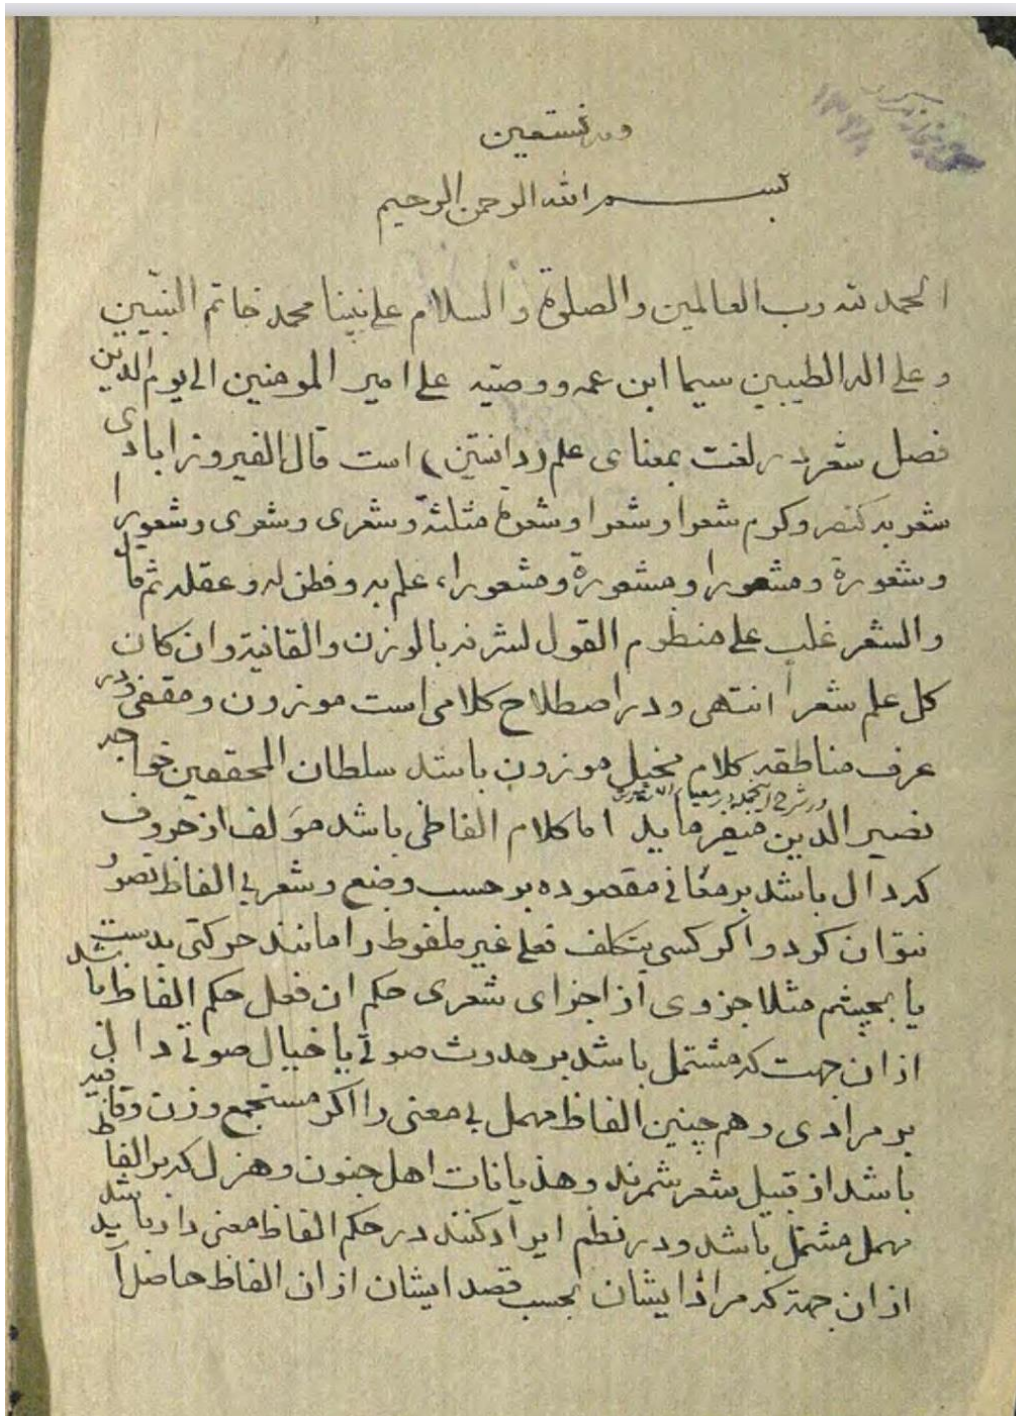 وبه نستعین
بسم الله الرحمن الرحیم
الحمد لله رب العالمین والصلوة والسلام علی نبینا محمد خاتم النبیین
و علی اله الطیبین سیما ابن عمه ووصیه علی امیر المومنین الی یوم الدین
فصل شعر در لغت بمعنای علم (دانستن) است قال الفیروزابادی
شعر به کنصر وکرم شعرا وشعرا وشعرة مثلثة وشعری وشعری وشعورا
وشعورة ومشعورا ومشعورة ومشعورا، علم به وفطن له وعقله ثم قال
والشعر غلب علی منظوم القول لشرفه بالوزن والقافیة وان کان
کل علم شعرا انتهی و در اصطلاح کلامی است موزون و مقفی و در
عرف مناطقه کلام مخیل موزون باشد سلطان المحققین خواجه
در شرح اینجمله در معیار الاشعار
نصیر الدین میفرماید اما کلام الفاظی باشد مولف از حروف
که دال باشد بر معانی مقصوده بر حسب وضع و شعر بی الفاظ تصور
نتوان کرد و اگر کسی بتکلف فعلی غیر ملفوظ را مانند حرکتی بدست
یا بچشم مثلا جزوی از اجزای شعری حکم ان فعل حکم الفاظ باشد
از ان جهت که مشتمل باشد بر حدوث صوتی یا خیال صوتی دال
بر مرادی و هم چنین الفاظ مهمل بی معنی را اگر مستجمع وزن و قافیه
باشد از قبیل شعر شمرند و هذیانات اهل جنون و هزل که بر الفاظ
مهمل مشتمل باشد و در نظم ایراد کنند در حکم الفاظ معنی دار باشد
از ان جهة که مراد ایشان بحسب قصد ایشان از ان الفاظ حاصل آید